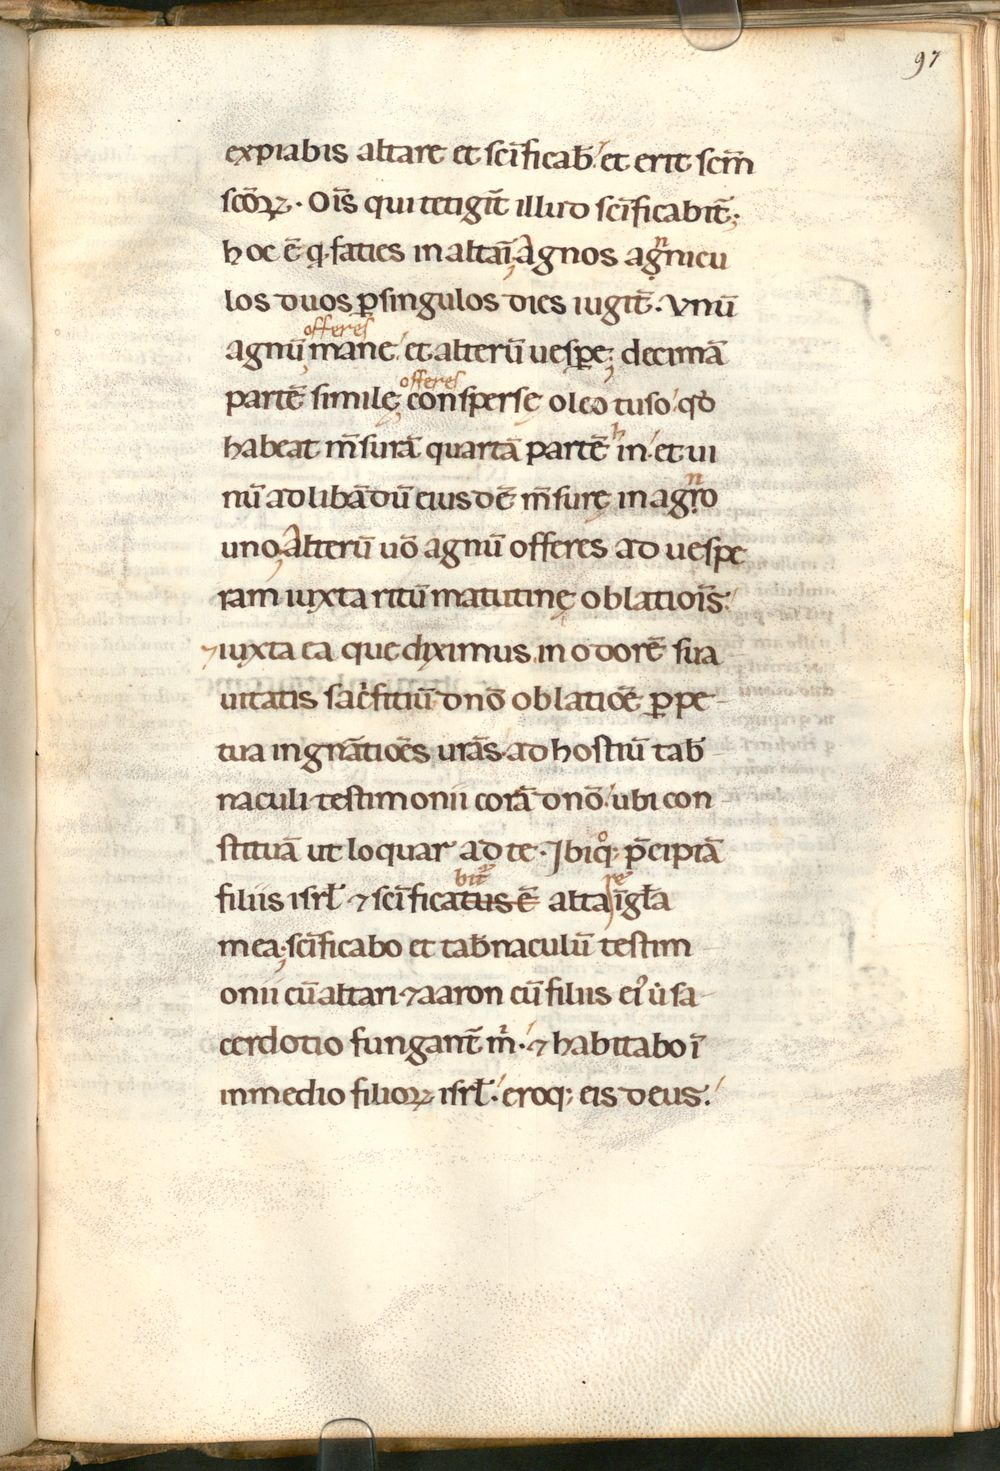 97
expiabis altare et scīficab̄ et erit scm̄
scōꝝ. Oīs qui tetigīt illud scīficabit̄;
hoc ē qd̄ faties in altarī; Agnos agnicu
los duos ꝑ singulos dies iugit̄. Vnū
offeres
agnū mane et alterū uesꝑe; decimā
offeres
partē similę consperse oleo tuso qđ
habeat m̄surā quartā partē hin. et ui
nū ad libādū eiusdē m̄surę in agno
uno; Alterū uō agnū offeres ad uespe
ram iuxta ritū matutinę oblatioīs:
⁊ iuxta ea que diximus in odorē sua
uitatis sacͥfitiū dnō oblatiōe ꝑpe
tua in gn̄atiōes urās. ad hostiū tab̄
naculi testimonii corā dnō. ubi con
stituā ut loquar ad te. Ibiqꝫ p̄cipiā
bit᷑ re
filiis isrł ⁊ scīficatus ē alta īgła
mea; scīficabo et tab̄naculū testim
onii cū altari ⁊ aaron cū filiis eiꝰ ut sa
cerdotio fungant̄ mͥ. ⁊ habitabo ī
inmedio filioꝝ isrł. eroqꝫ eis deus.